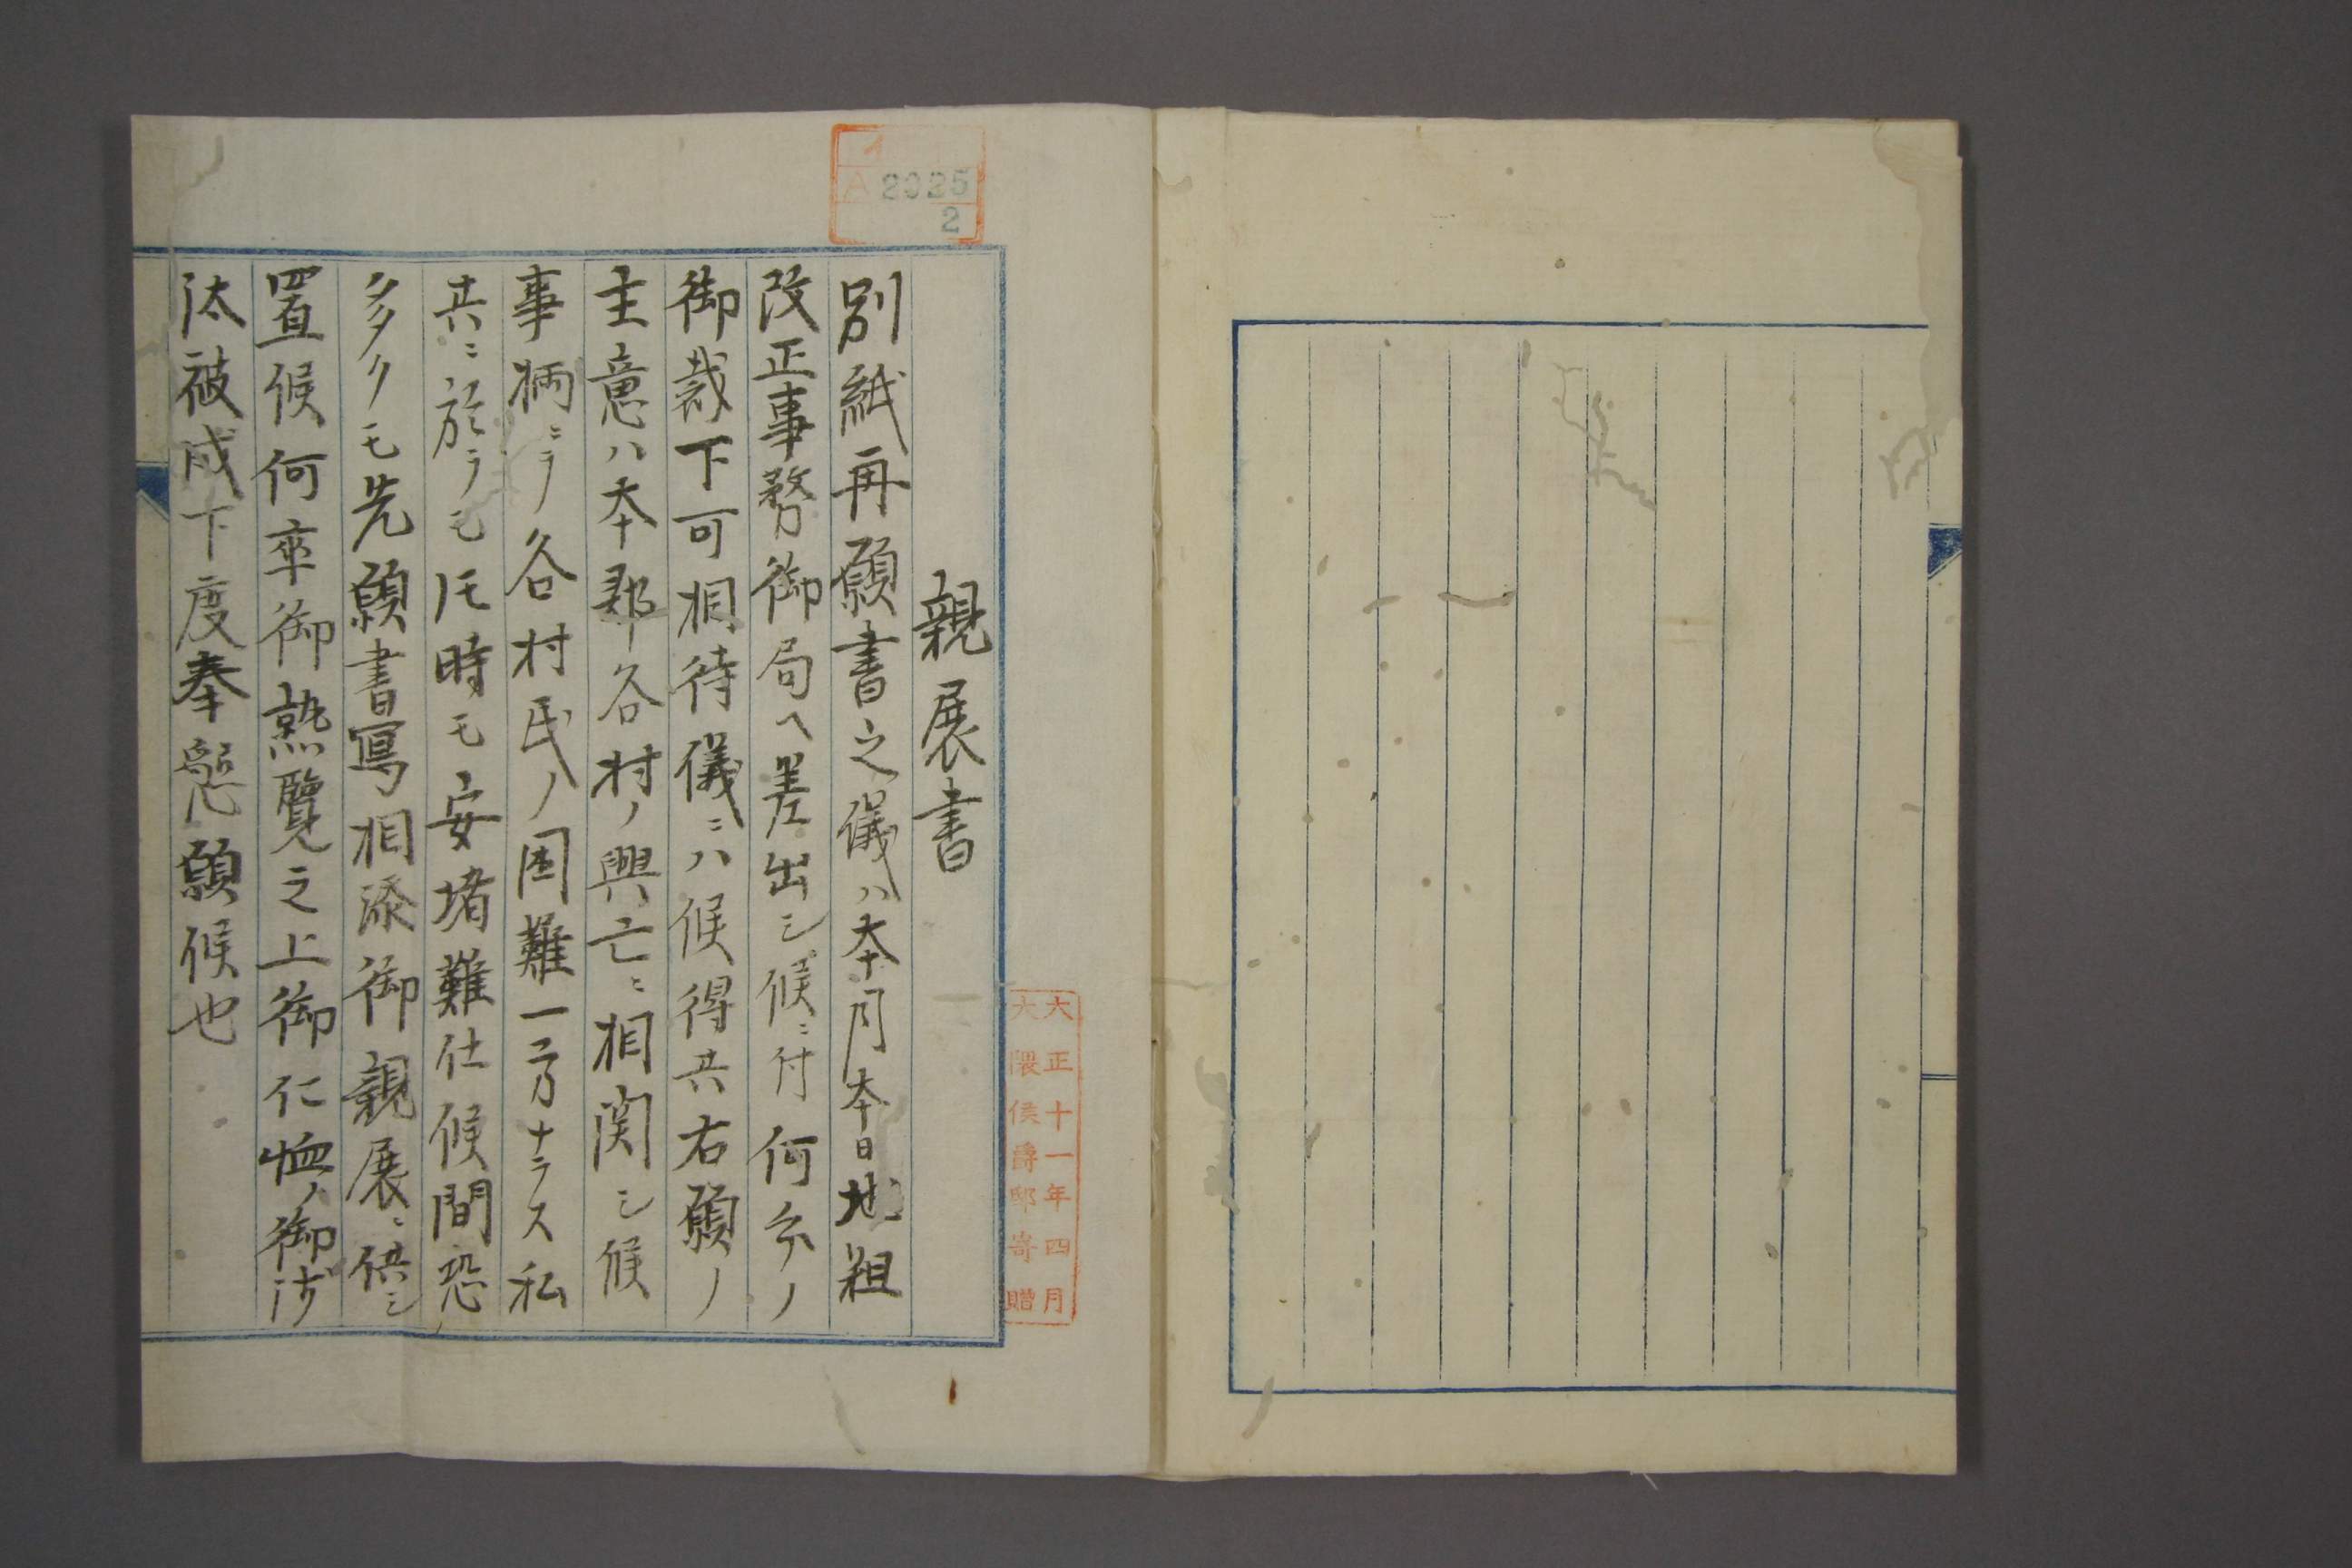 親展書
別紙再願書之儀ハ本月本日地租
改正事務御局ヘ差出シ候ニ付何分ノ
御裁下可相待儀ニハ候得共右願ノ
主意ハ本郡各村ノ興亡ニ相関シ候
事柄ニテ各村民ノ困難一方ナラス私
共ニ於テモ片時モ安堵難仕候間恐
多クモ先願書写相添御親展ニ供シ
置候何卒御熟覧之上御仁恤ノ御沙
汰被成下度奉懇願候也
イ
A 2025
2
大正十一年四月
大隈侯爵邸寄贈